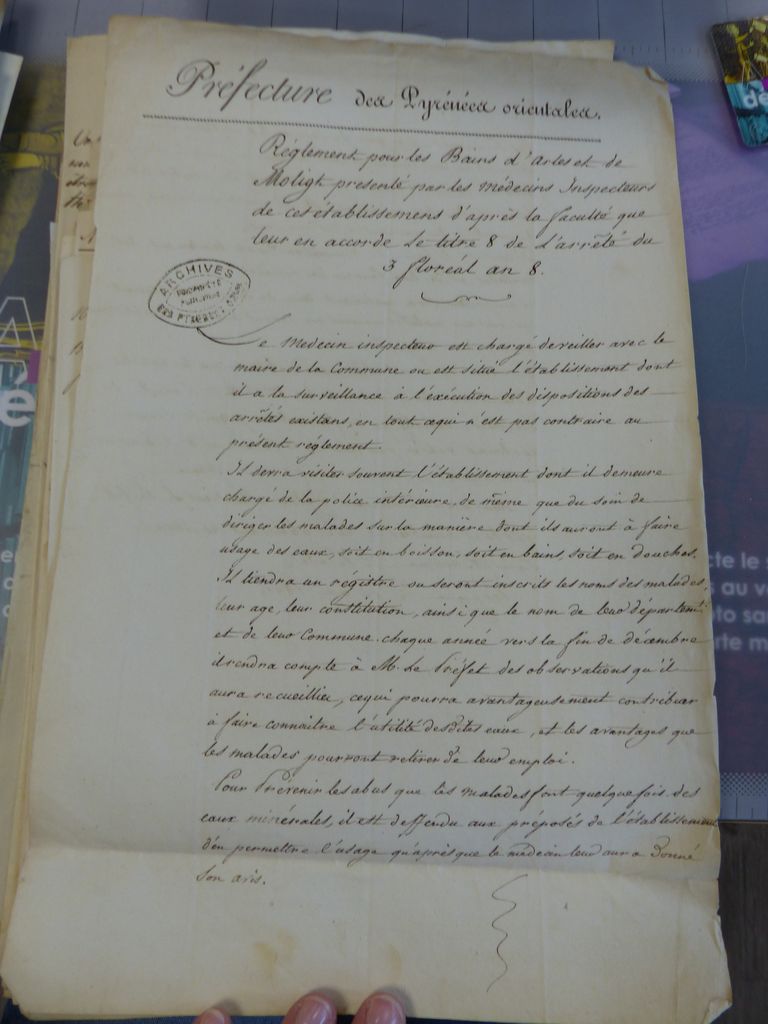 Préfecture des Pyrénées orientales.
Réglement pour les Bains d'Arles et de
Moligt presenté par les médecins Inspecteurs
de ces établissemens d'après la faculté que
leur en accorde Le titre 8 de L'arrêté du
3 floréal an 8.
ARCHIVES
Le Medecin inspecteur est chargé de veiller avec le
maire de la Commune ou est situé l'établissement dont
il a la surveillance à l'exécution des dispositions des
arrêtés existans, en tout cequi n'est pas contraire au
présent réglement.
Il devra visiter souvent l'établissement dont il demeure
chargé de la police intérieure, de même que du soin de
diriger les malades sur la manière dont ils auront à faire
usage des eaux, soit en boisson, soit en bains, soit en douches.
Il tiendra un régistre ou seront inscrits les noms des malades,
leur age, leur constitution, ainsi que le nom de leur départemt
et de leur Commune. chaque année vers la fin de décembre
il rendra compte à M. Le Préfet des observations qu'il
aura recueillies, cequi pourra avantageusement contribuer
à faire connaitre l'utilité desdites eaux, et les avantages que
les malades pourront retirer de leur emploi.
Pour Prévenir les abus que les malades font quelque fois des
eaux minérales, il est deffendu aux préposés de l'établissement
d'en permettre l'usage qu'après que le médecin leur aura Donné
son avis.